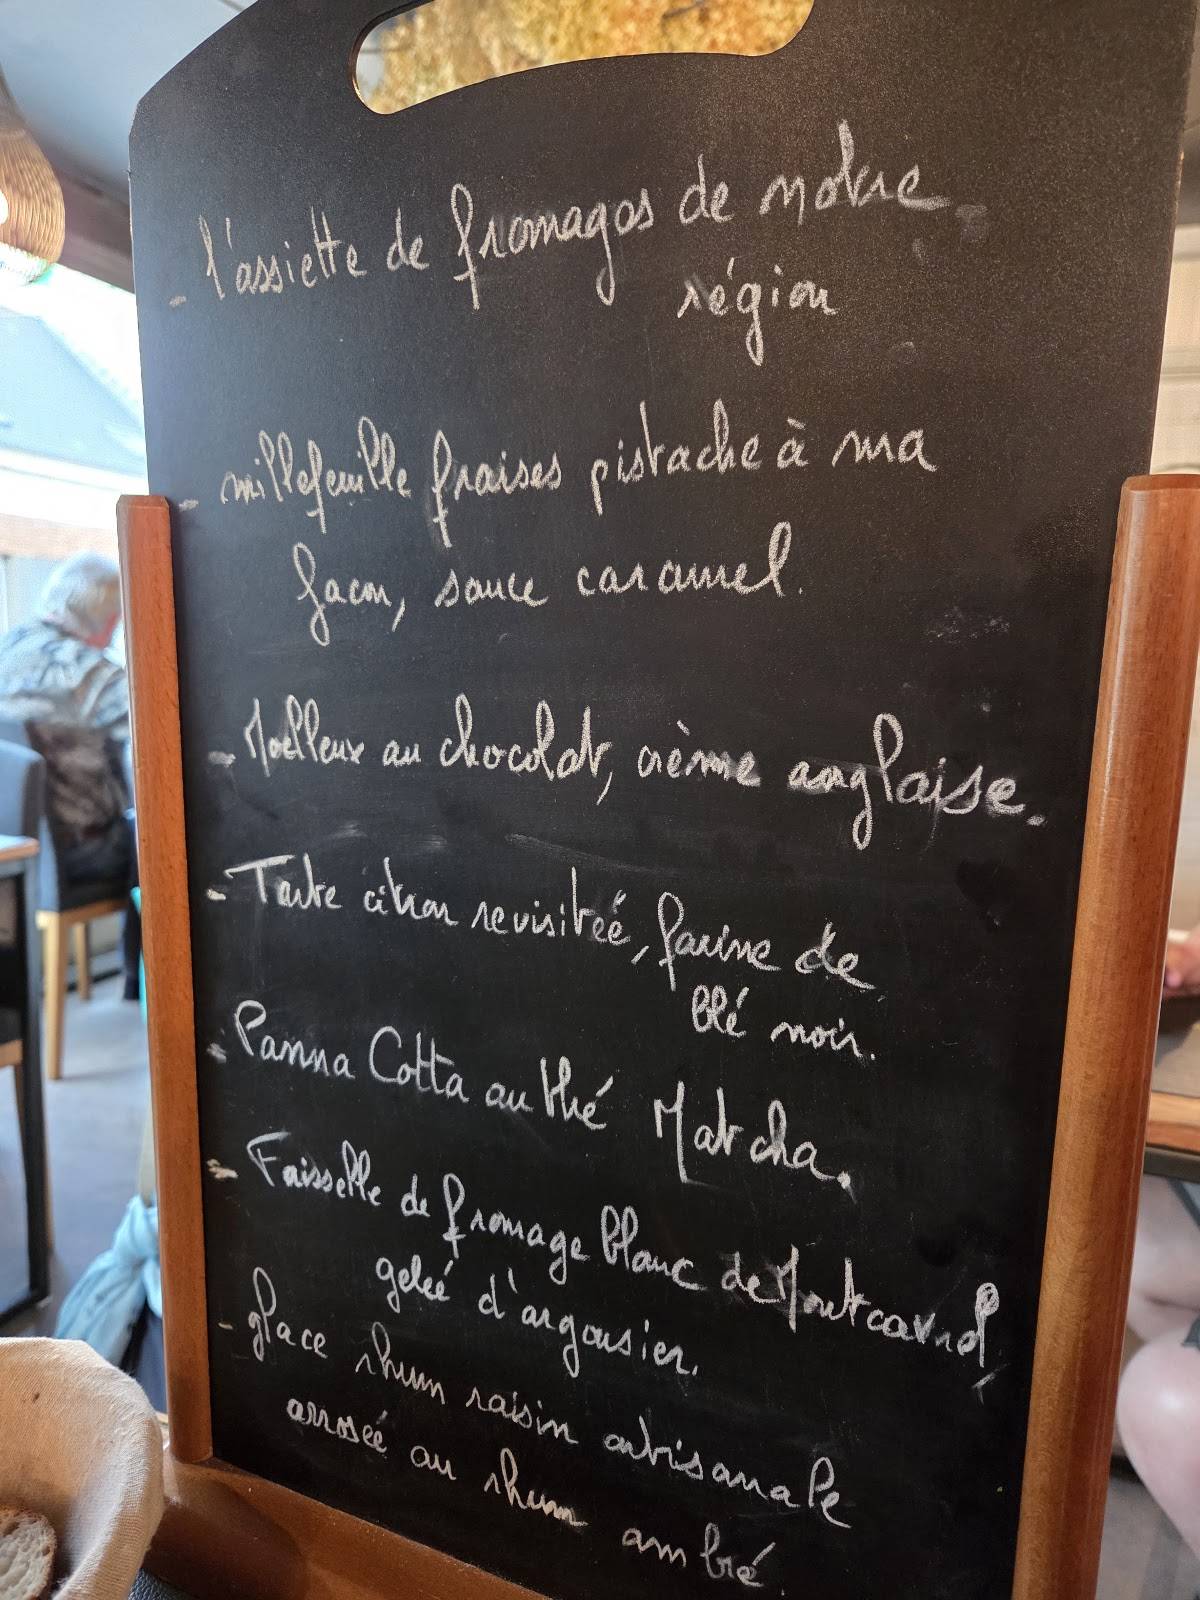 - l'assiette de fromages de notre
région
- millefeuille fraises pistache à ma
façon, sauce caramel.
- Moelleux au chocolat, crème anglaise.
- Tarte citron revisiteé, farine de
blé noir.
- Panna Cotta au thé Matcha.
- Faisselle de fromage blanc de Montcavrel,
geleé d'argousier.
- glace rhum raisin artisanale
arroseé au rhum ambré.